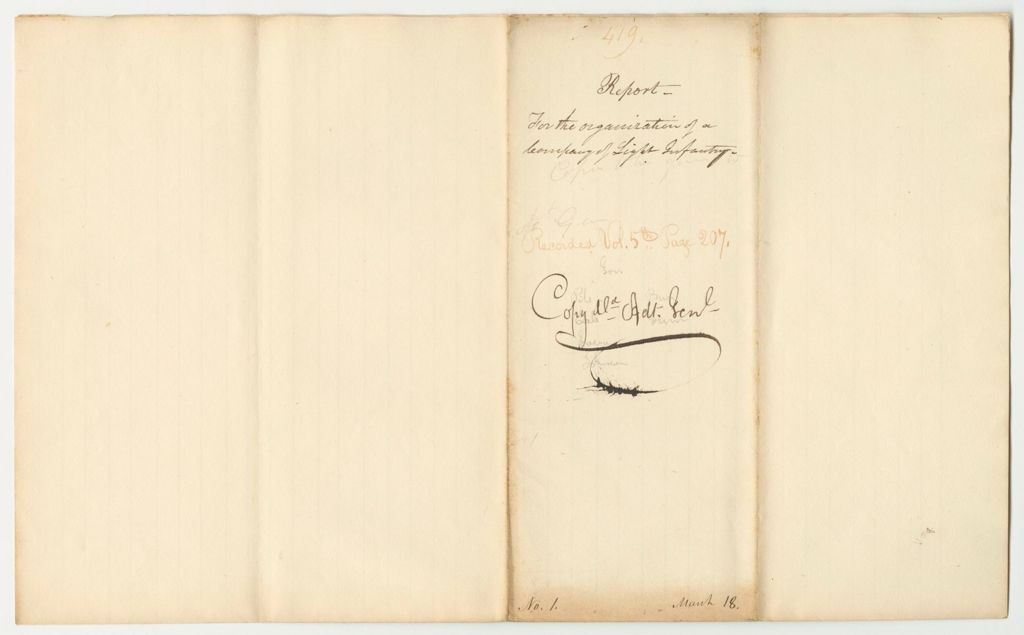 419.
Report –
For the organization of a
Company of Light Infantry –
Recorded Vol. 5th Page 207.
Gov.
Copy dld Adt. Genl
Johnson
No. 1.
March 18.